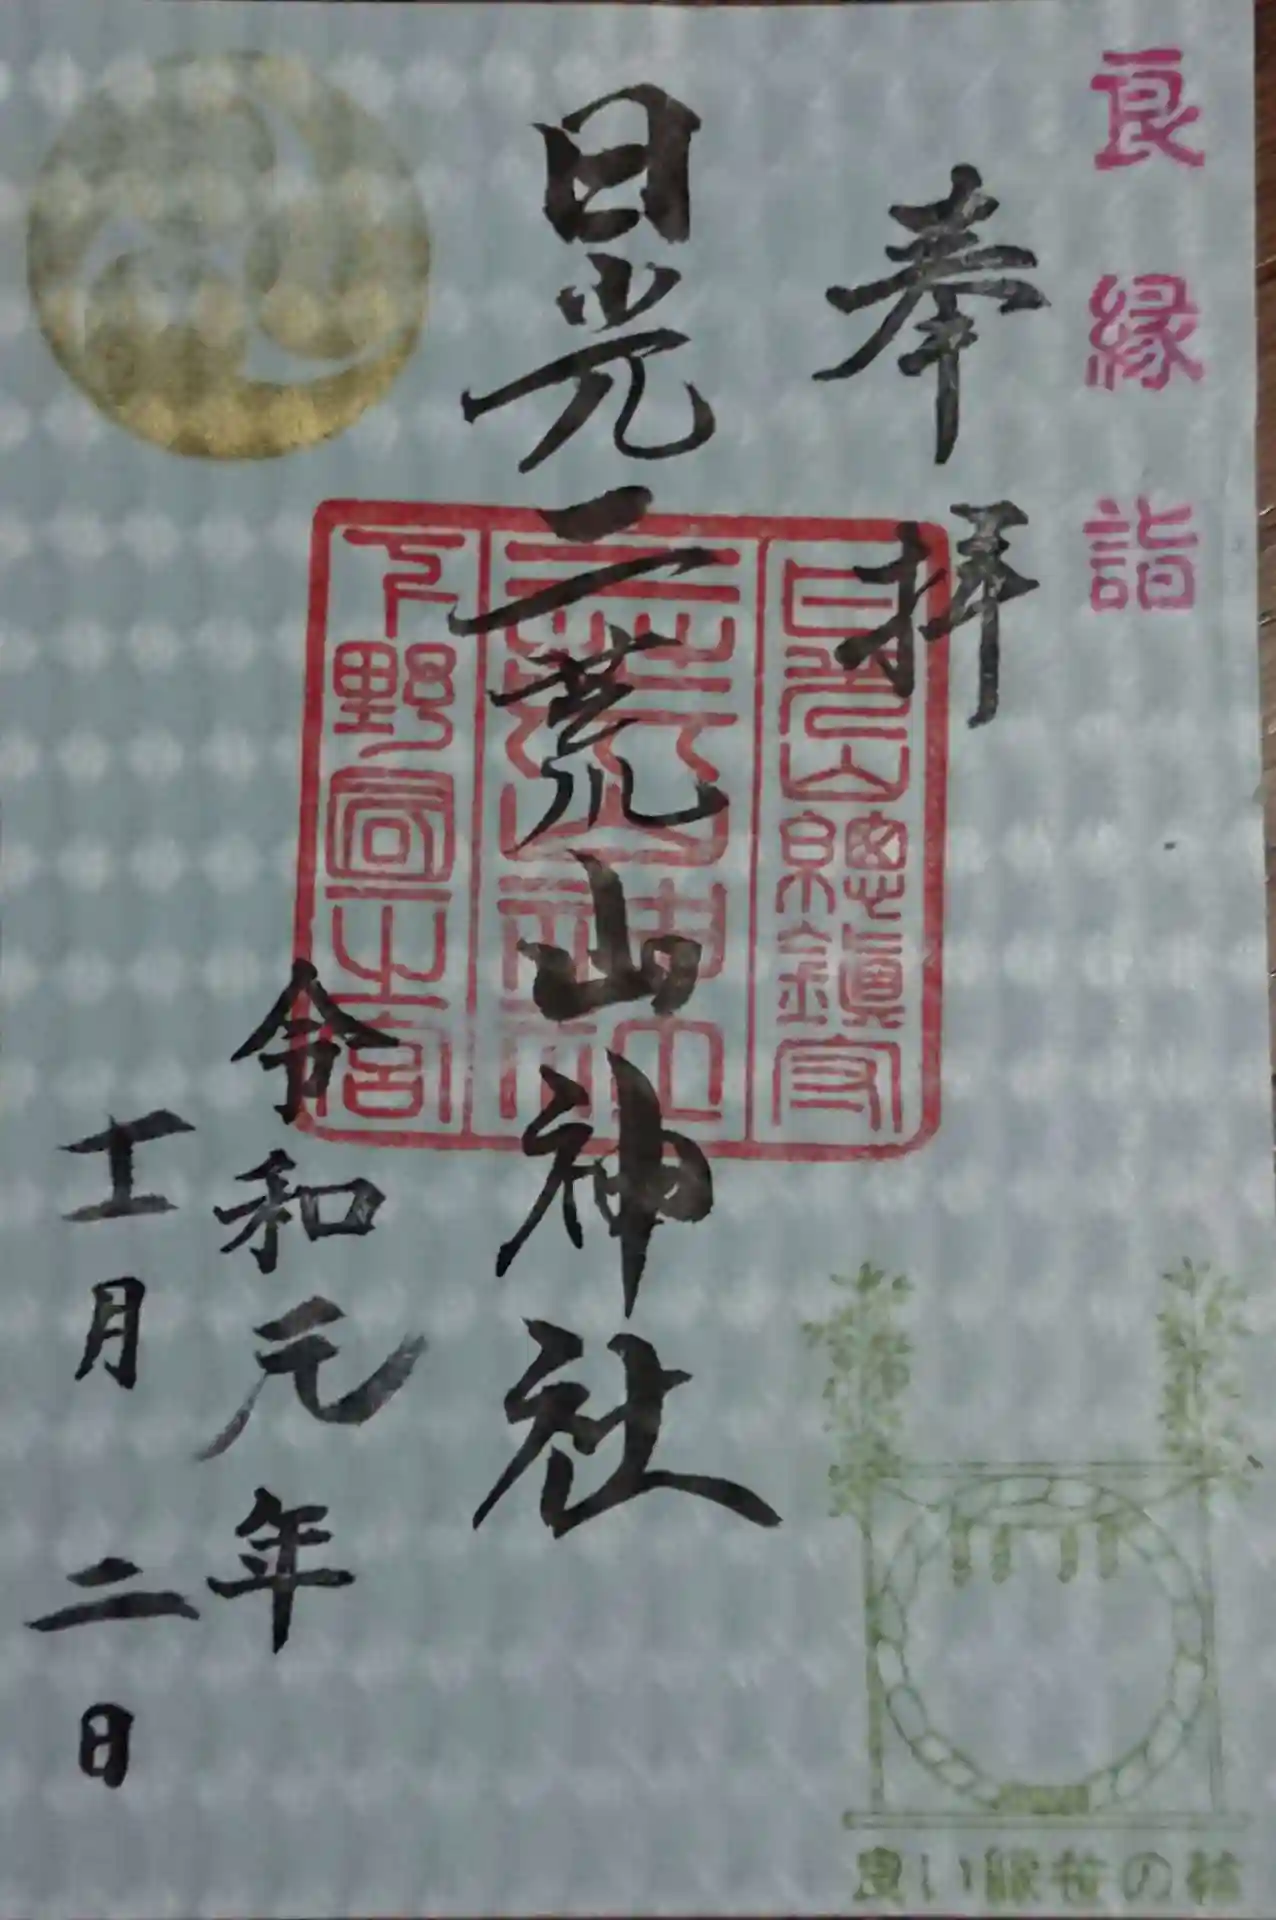 良縁詣
奉拝
日光二荒山神社
日光山總鎮守
二荒山神社
下野國一之宮
令和元年
十一月二日
良い縁笹の輪